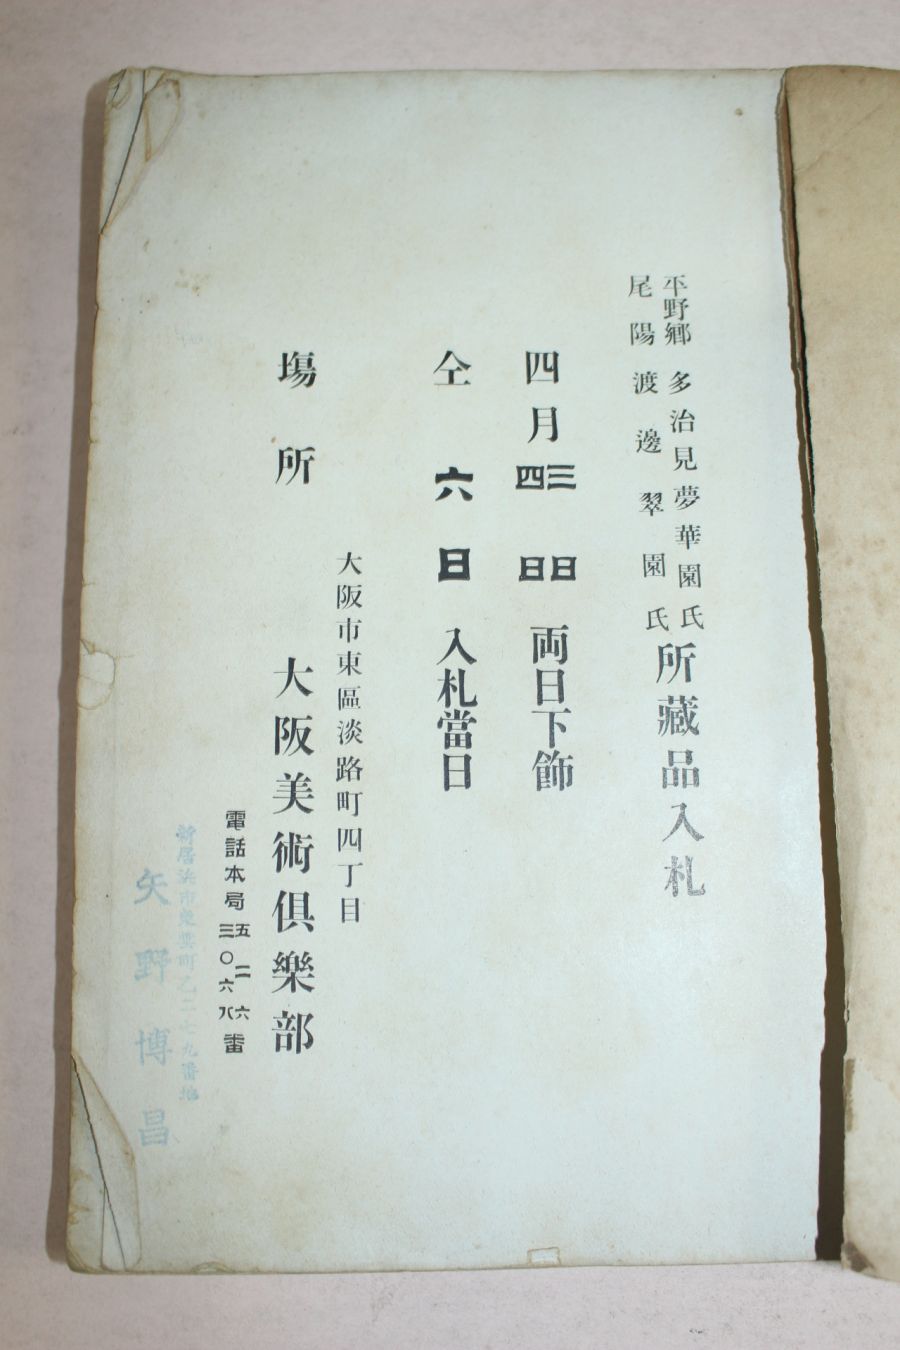 平野郷 多治見夢華園氏
尾陽 渡邊翠園氏
所藏品入札
四月三日
四日
両日下飾
仝六日入札當日
大阪市東區淡路町四丁目
塲所 大阪美術倶樂部
電話本局
五二六
三〇六八
番
新居浜市東雲町乙二七九番地
矢野博昌